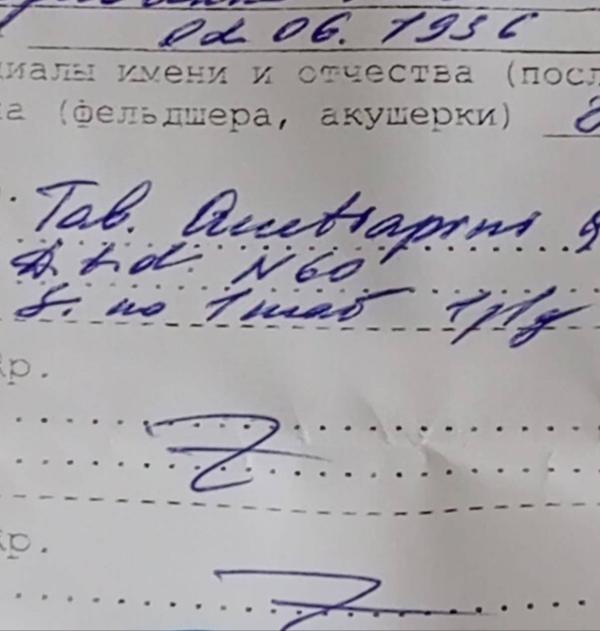 06. 1936
циалы имени и отчества (посл
а (фельдшера, акушерки)
Tab.
D.t.d. N 60
S. по 1 таб 1р/д
Rp.
Rp.